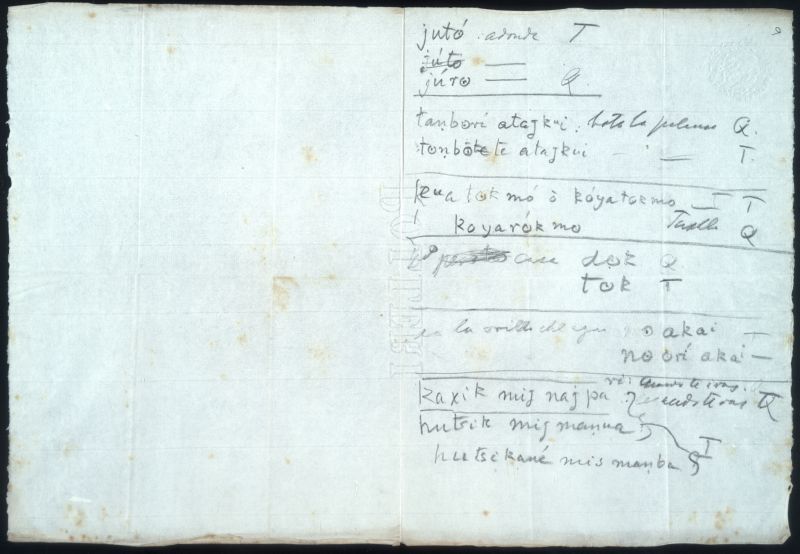 jutó adonde T
júto —
júro — Q
taṇborí atajkui, bota la Q.
tonbõtete atajkui — — T.
keuatokmó ò kóyatokmo — T
koyarókmo Q
casa dok Q
tok T
la orilla del akai T
no orí akai —
kaxik mij naj pa Q
hutsik mij maṇua
T
hutsikané mis maṇba